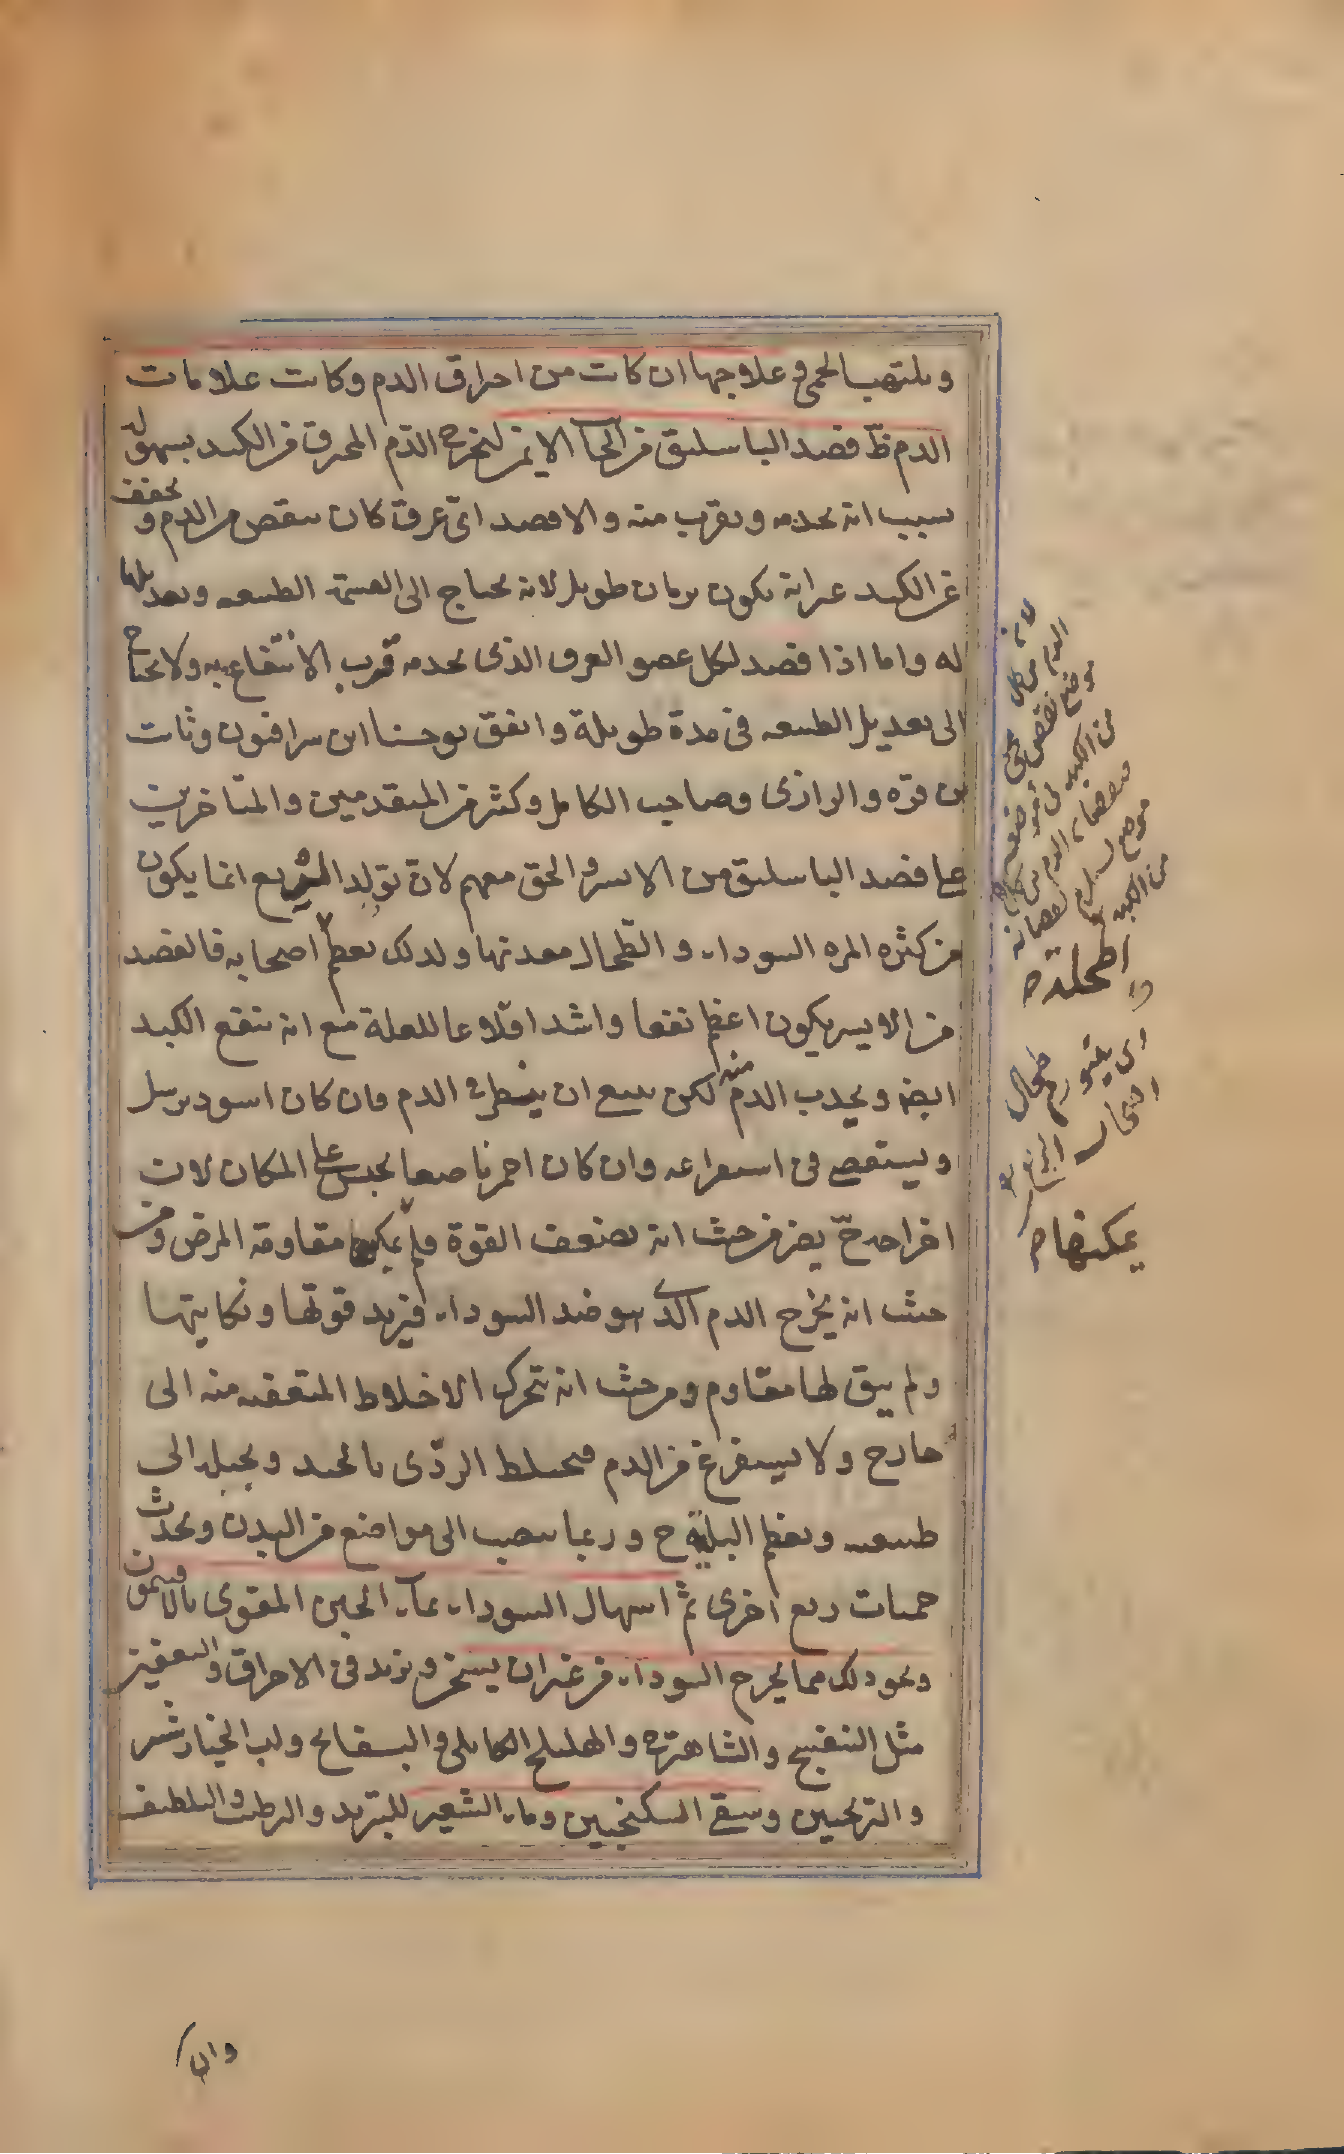 ويلتهب الحمى وعلاجها ان كانت من احراق الدم وكانت علامات
الدم ظ فصد الباسليق من الجانب الايمن ليخرج الدم المحرق من الكبد بسهوله
بسبب انه يحدبه ويقرب منه والا فصد اى عرق كان ينقص من الدم ويخفف
عن الكبد غير انه يكون بزمان طويل لانه يحتاج الى القسمة الطبيعه وتعديلها
له واما اذا فصد لكل عضو العرق الذى يحدبه قرب الانتفاع به ولا يحتاج
الى تعديل الطبيعه فى مدة طويلة واتفق يوحنا ابن سرافيون وثابت
بن قره والرازى وصاحب الكامل وكثير من المتقدمين والمتاخرين
على فصد الباسليق من الايسر والحق معهم لان تولد الربع انما يكون
من كثرة المره السوداء والطحال معدنها ولذلك يعظم اصحابه فالفصد
من الايسر يكون اعظم نفعا واشد اقلاعا للعلة مع انه ينفع الكبد
ايضا ويجذب الدم منه لكن ينبغى ان ينظر فى الدم فان كان اسود يرسل
ويستقصى فى استفراغه وان كان احمر ناصعا يحبس على المكان لان
اخراجه ح يضر من حيث انه يضعف القوة فلم يمكنها مقاومة المرض ومن
حيث انه يخرج الدم الذى هو ضد السوداء فيزيد قوتها ونكايتها
ولم يبق لها مقاوم ومن حيث انه تتحرك الاخلاط المتعفنه منه الى
خارج ولا يستفرغ من الدم فيختلط الردى بالجيد ويحيله الى
طبيعته ويعظم البلية ح وربما ينصب الى مواضع من البدن ويحدث
حميات ربع اخرى ثم اسهال السوداء بماء الجبن المقوى بالافتيمون
ونحو ذلك مما يخرج السوداء من غير ان يسخن ويزيد فى الاحراق والتعفين
مثل البنفسج والشاهترج والهليلج الكابلى والبسفايج ولب الخيارشنبر
والترنجبين وسقى السكنجبين وماء الشعير للتبريد والترطيب والتلطيف
اطحلته
اى يتورم طحال
يمكنها
وان